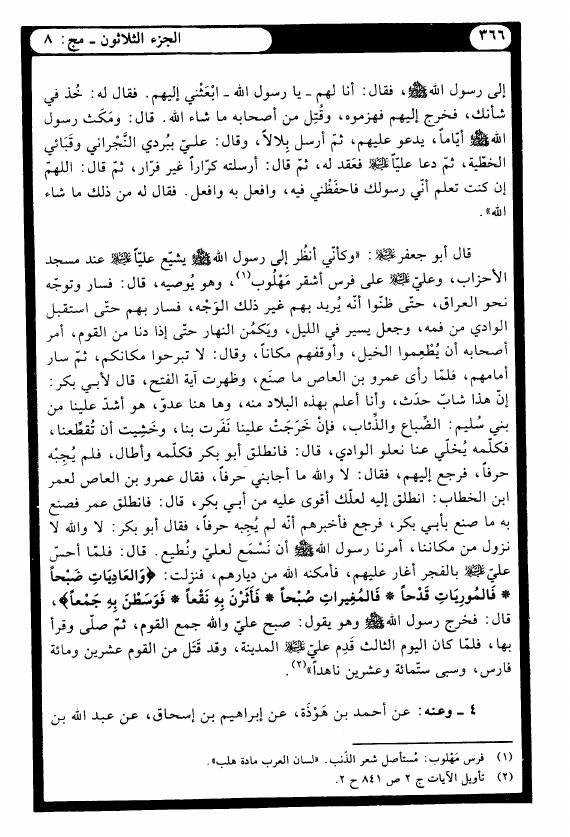 ٣٦٦
الجزء الثلاثون ـ مج: ٨
إلى رسول الله ﷺ، فقال: أنا لهم ـ يا رسول الله ـ ابْعَثْني إليهم. فقال له: خُذ في
شأنك، فخرج إليهم فهزموه، وقُتِل من أصحابه ما شاء الله. قال: ومَكَث رسول
الله ﷺ أيّاماً، يدعو عليهم، ثمّ أرسل بِلالاً، وقال: عليّ ببُردي النَّجراني وقَبَائي
الخطّية، ثمّ دعا عليّاً عليه السلام فعَقد له، ثمّ قال: أرسلته كرّاراً غير فرّار، ثمّ قال: اللهمّ
إن كنت تعلم أنّي رسولك فاحفَظْني فيه، وافعل به وافعل. فقال له من ذلك ما شاء
الله».
قال أبو جعفر عليه السلام: «وكأنّي أنظُر إلى رسول الله ﷺ يشيّع عليّاً عليه السلام عند مسجد
الأحزاب، وعليّ عليه السلام على فرس أشقر مَهْلُوب(١)، وهو يُوصيه، قال: فسار وتوجّه
نحو العراق، حتّى ظنّوا أنّه يُريد بهم غير ذلك الوَجْه، فسار بهم حتّى استقبل
الوادي من فمه، وجعل يسير في الليل، ويَكمُن النهار حتّى إذا دنا من القوم، أمر
أصحابه أن يُطْعِموا الخيل، وأوقفهم مكاناً، وقال: لا تبرحوا مكانكم، ثمّ سار
أمامهم، فلمّا رأى عمرو بن العاص ما صنَع، وظهرت آية الفتح، قال لأبي بكر:
إنّ هذا شابّ حدَث، وأنا أعلم بهذه البلاد منه، وها هنا عدوّ، هو أشدّ علينا من
بني سُليم: الضِّباع والذِّئاب، فإنْ خَرَجَتْ علينا نَفَرت بنا، وخَشِيت أن تُقطِّعنا،
فكلمه يُخلّي عنا نعلو الوادي، قال: فانطلق أبو بكر فكلّمه وأطال، فلم يُجِبْه
حرفاً، فرجع إليهم، فقال: لا والله ما أجابني حرفاً، فقال عمرو بن العاص لعمر
ابن الخطاب: انطلق إليه لعلّك أقوى عليه من أبي بكر، قال: فانطلق عمر فصنع
به ما صنع بأبي بكر، فرجع فأخبرهم أنّه لم يُجِبه حرفاً، فقال أبو بكر: لا والله لا
نزول من مكاننا، أمرنا رسول الله ﷺ أن نَسْمَع لعليّ ونُطيع. قال: فلمّا أحسّ
عليّ عليه السلام بالفجر أغار عليهم، فأمكنه الله من ديارهم، فنزلت: ﴿وَالعَادِيَاتِ ضَبْحاً
* فَالمُورِيَاتِ قَدْحاً * فَالمُغيراتِ صُبْحاً * فَأثَرْنَ بِهِ نَقْعاً * فَوَسَطْنَ بِهِ جَمْعاً﴾،
قال: فخرج رسول الله ﷺ وهو يقول: صبح عليّ والله جمع القوم، ثمّ صلّى وقرأ
بها، فلمّا كان اليوم الثالث قَدِم عليّ عليه السلام المدينة، وقد قَتَل من القوم عشرين ومائة
فارس، وسبى ستّمائة وعشرين ناهداً»(٢).
٤ ـ وعنه: عن أحمد بن هَوْذَة، عن إبراهيم بن إسحاق، عن عبد الله بن
(١) فرس مَهْلوب: مُستأصل شعر الذّنب. «لسان العرب مادة هلب».
(٢) تأويل الآيات ج ٢ ص ٨٤١ ح ٢.